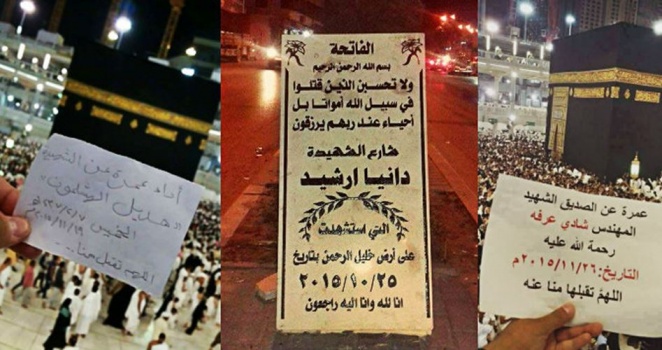 أداء عمرة عن الشهيدة
"هديل الهشلمون"
الخميس
٢٠١٥/١١/١٩م
اللهم تقبل منا...
الفاتحة
بسم الله الرحمن الرحيم
ولا تحسبن الذين قتلوا
في سبيل الله أمواتا بل
أحياء عند ربهم يرزقون
شارع الشهيدة
دانيا ارشيد
التي استشهدت
على أرض خليل الرحمن بتاريخ
٢٠١٥/١٠/٢٥
انا لله وانا اليه راجعون
عمرة عن الصديق الشهيد
المهندس شادي عرفه
رحمة الله عليه
التاريخ:٢٠١٥/١١/٢٦م
اللهم تقبلها منا عنه